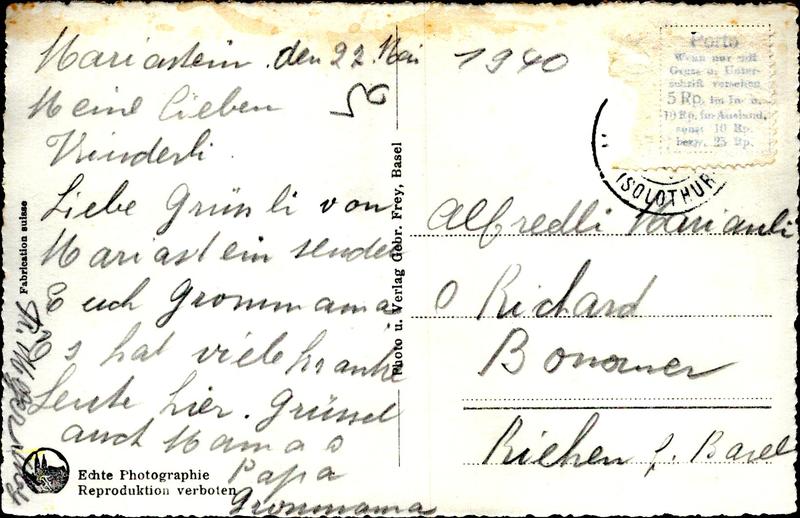 Mariastein den 22. Mai 1940
Meine Lieben
Kinderli
Liebe Grüsli von
Mariastein sendet
Euch Grommama
Es hat viele kranke
Leute hier. Grüssd
auch Mama
Papa
Grommama
Alfredli Mariandli
Richard
Riehen b. Basel
Porto
Wenn nur mit
Gruss u. Unter-
schrift versehen
5 Rp. im In- u.
10 Rp. im Ausland,
sonst 10 Rp.
bezw. 25 Rp.
(SOLOTHUR
Fabrication suisse
Photo u. Verlag Gebr. Frey, Basel
Echte Photographie
Reproduktion verboten